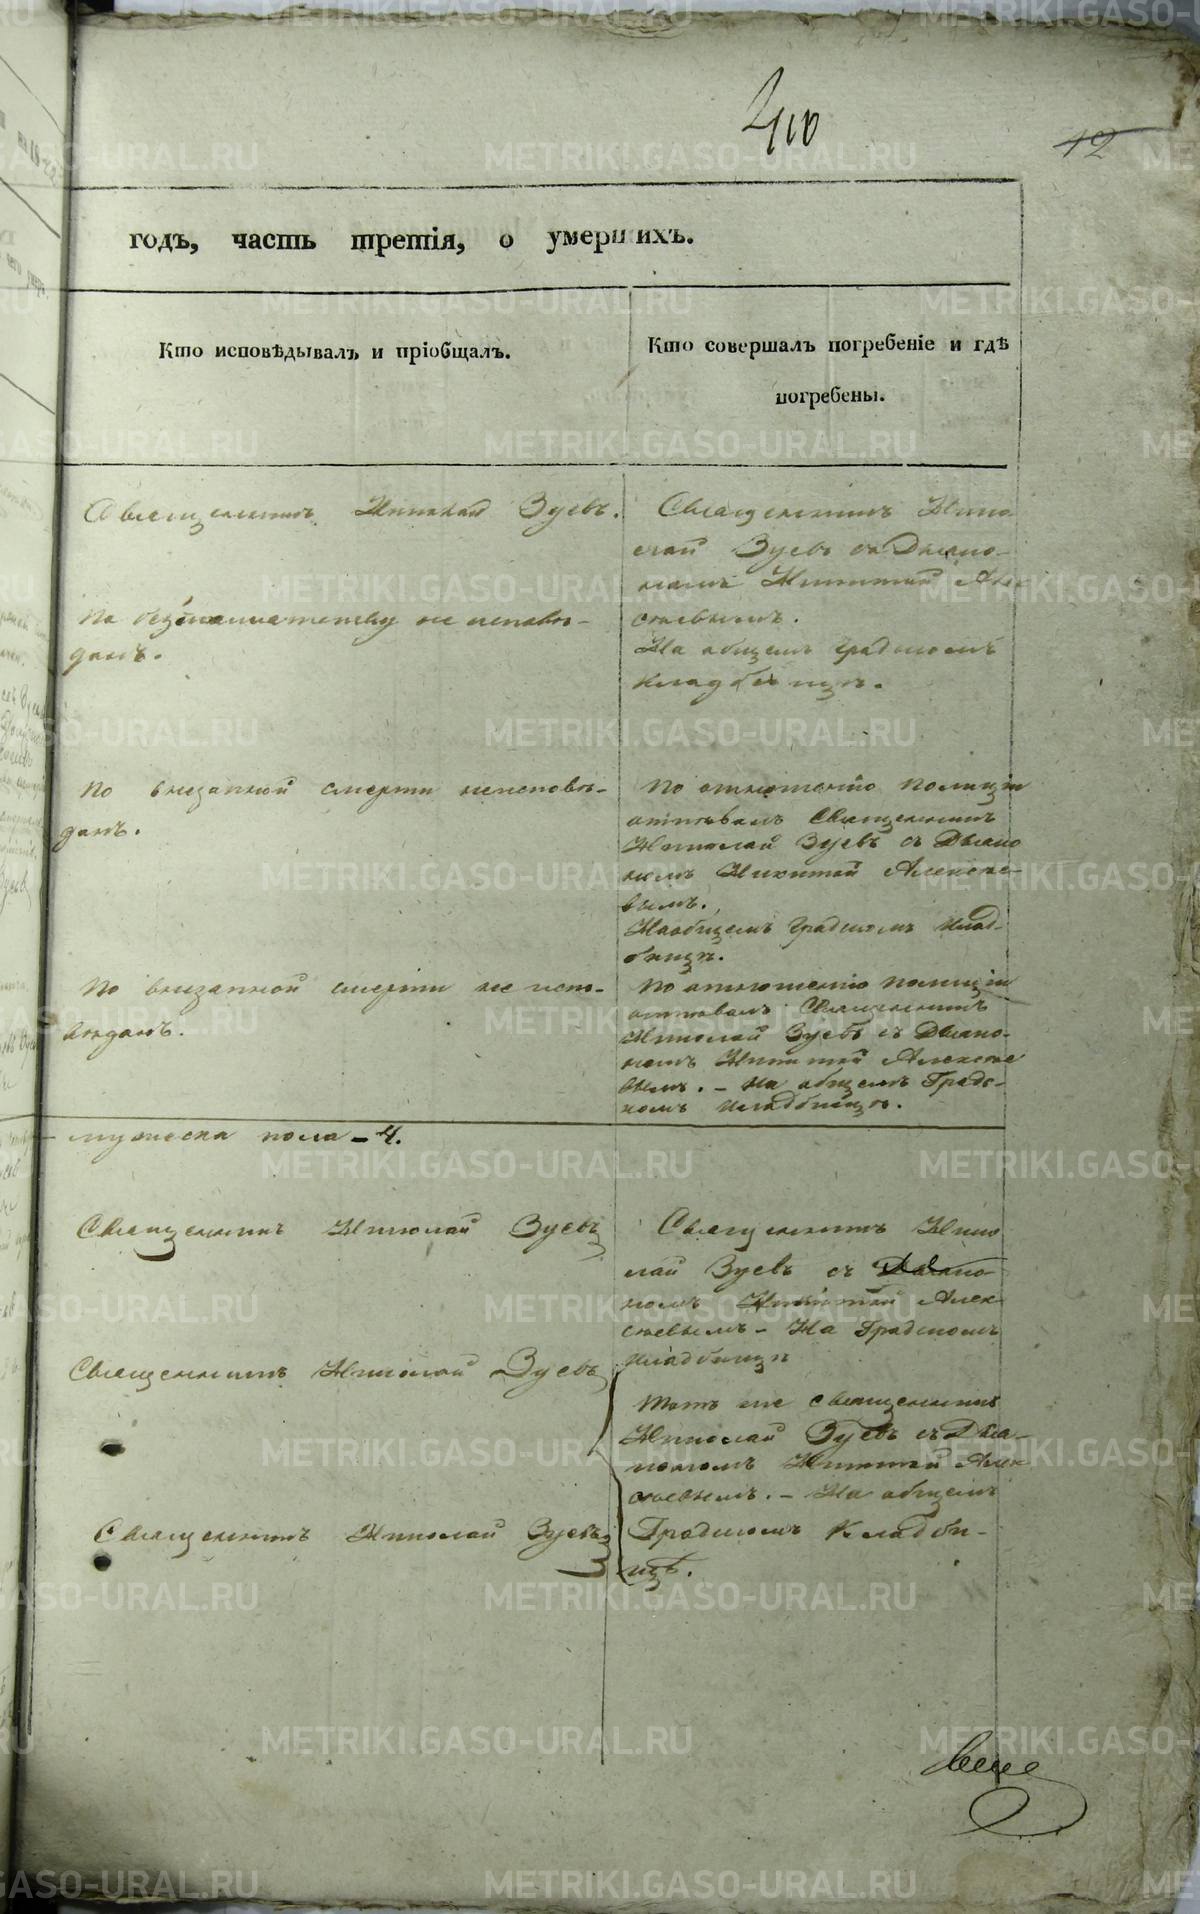 410
12
годъ, часть третія, о умершихъ.
Кто исповѣдывалъ и пріобщалъ.
Кто совершалъ погребеніе и гдѣ
погребены.
Священникъ Николай Зуевъ.
По безпамятству не исповѣ-
данъ.
Священникъ Нико
лай Зуевъ съ Дьяко-
номъ Никитой Алек
сѣевымъ.
На общемъ градскомъ
кладбищѣ.
По внезапной смерти неисповѣ-
данъ.
По отношенію Полиціи
отпѣвалъ Священникъ
Николай Зуевъ съ Дьяко
номъ Никитой Алексѣе-
вымъ.
На общемъ Градскомъ клад-
бищѣ.
По внезапной смерти не испо-
вѣданъ.
По отношенію Полиціи
отпѣвалъ Священникъ
Николай Зуевъ съ Дьяко-
номъ Никитой Алексѣе
вымъ. – на общемъ Градс-
комъ кладбищѣ.
мужеска пола – 4.
Священникъ Николай Зуевъ
Священникъ Нико
лай Зуевъ съ Дьяко-
номъ Никитой Алек
сѣевымъ – На Градскомъ
кладбищѣ
Священникъ Николай Зуевъ
Тотъ же священникъ
Николай Зуевъ съ Дья-
кономъ Никитой Алек
сѣевымъ. – На общемъ
Градскомъ Кладби-
щѣ.
Священникъ Николай Зуевъ
METRIKI.GASO-URAL.RU